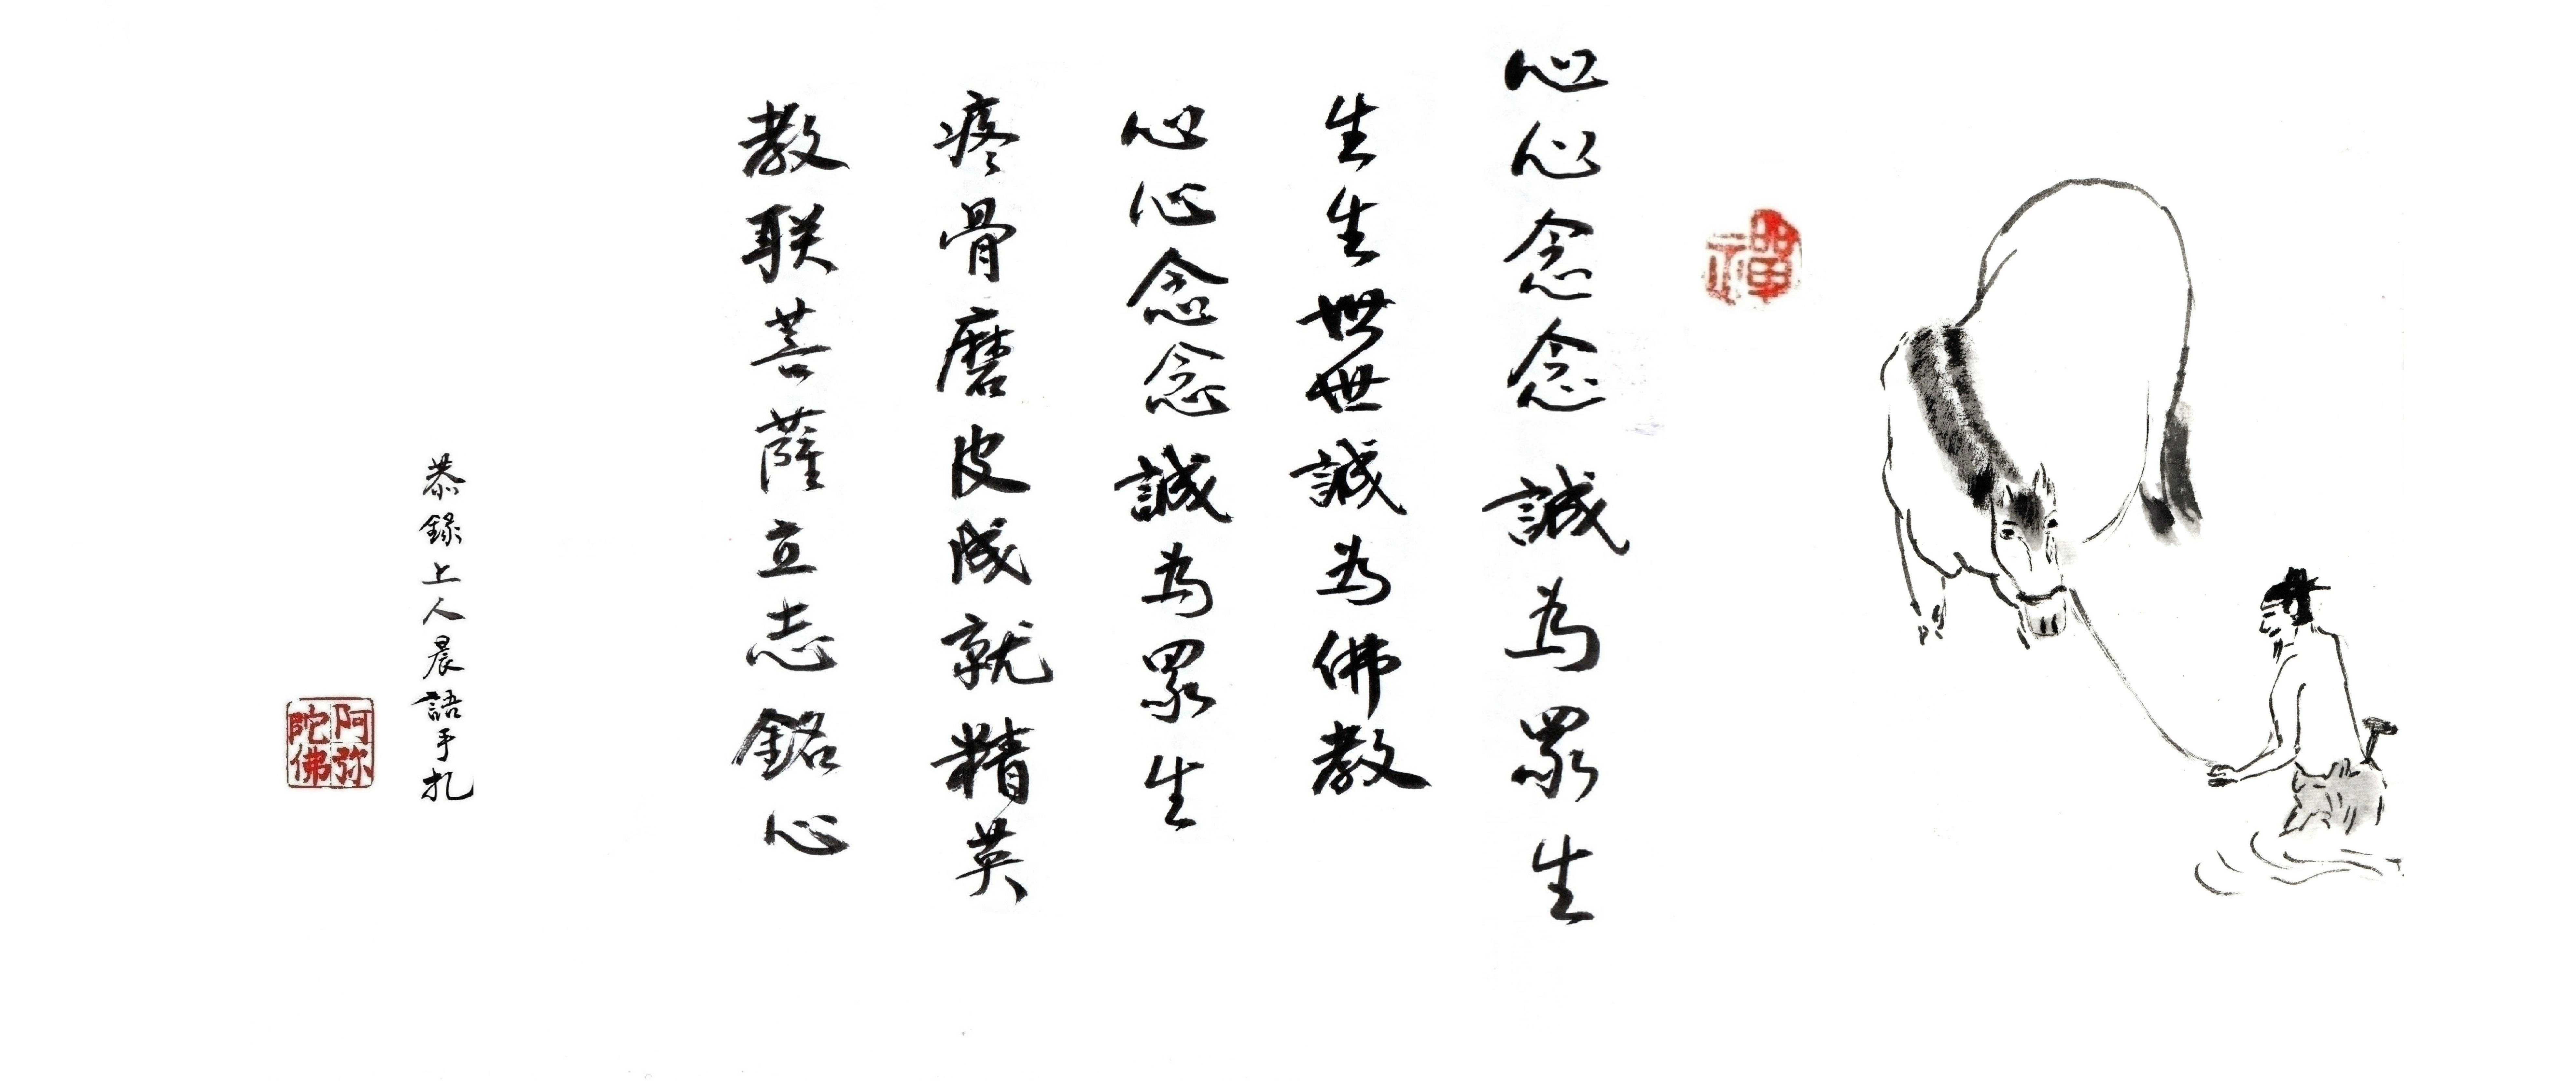 禪
心心念念誠為眾生
生生世世誠為佛教
心心念念誠為眾生
疼骨磨皮成就精英
教联菩薩立志銘心
恭錄上人晨語手扎
阿弥陀佛